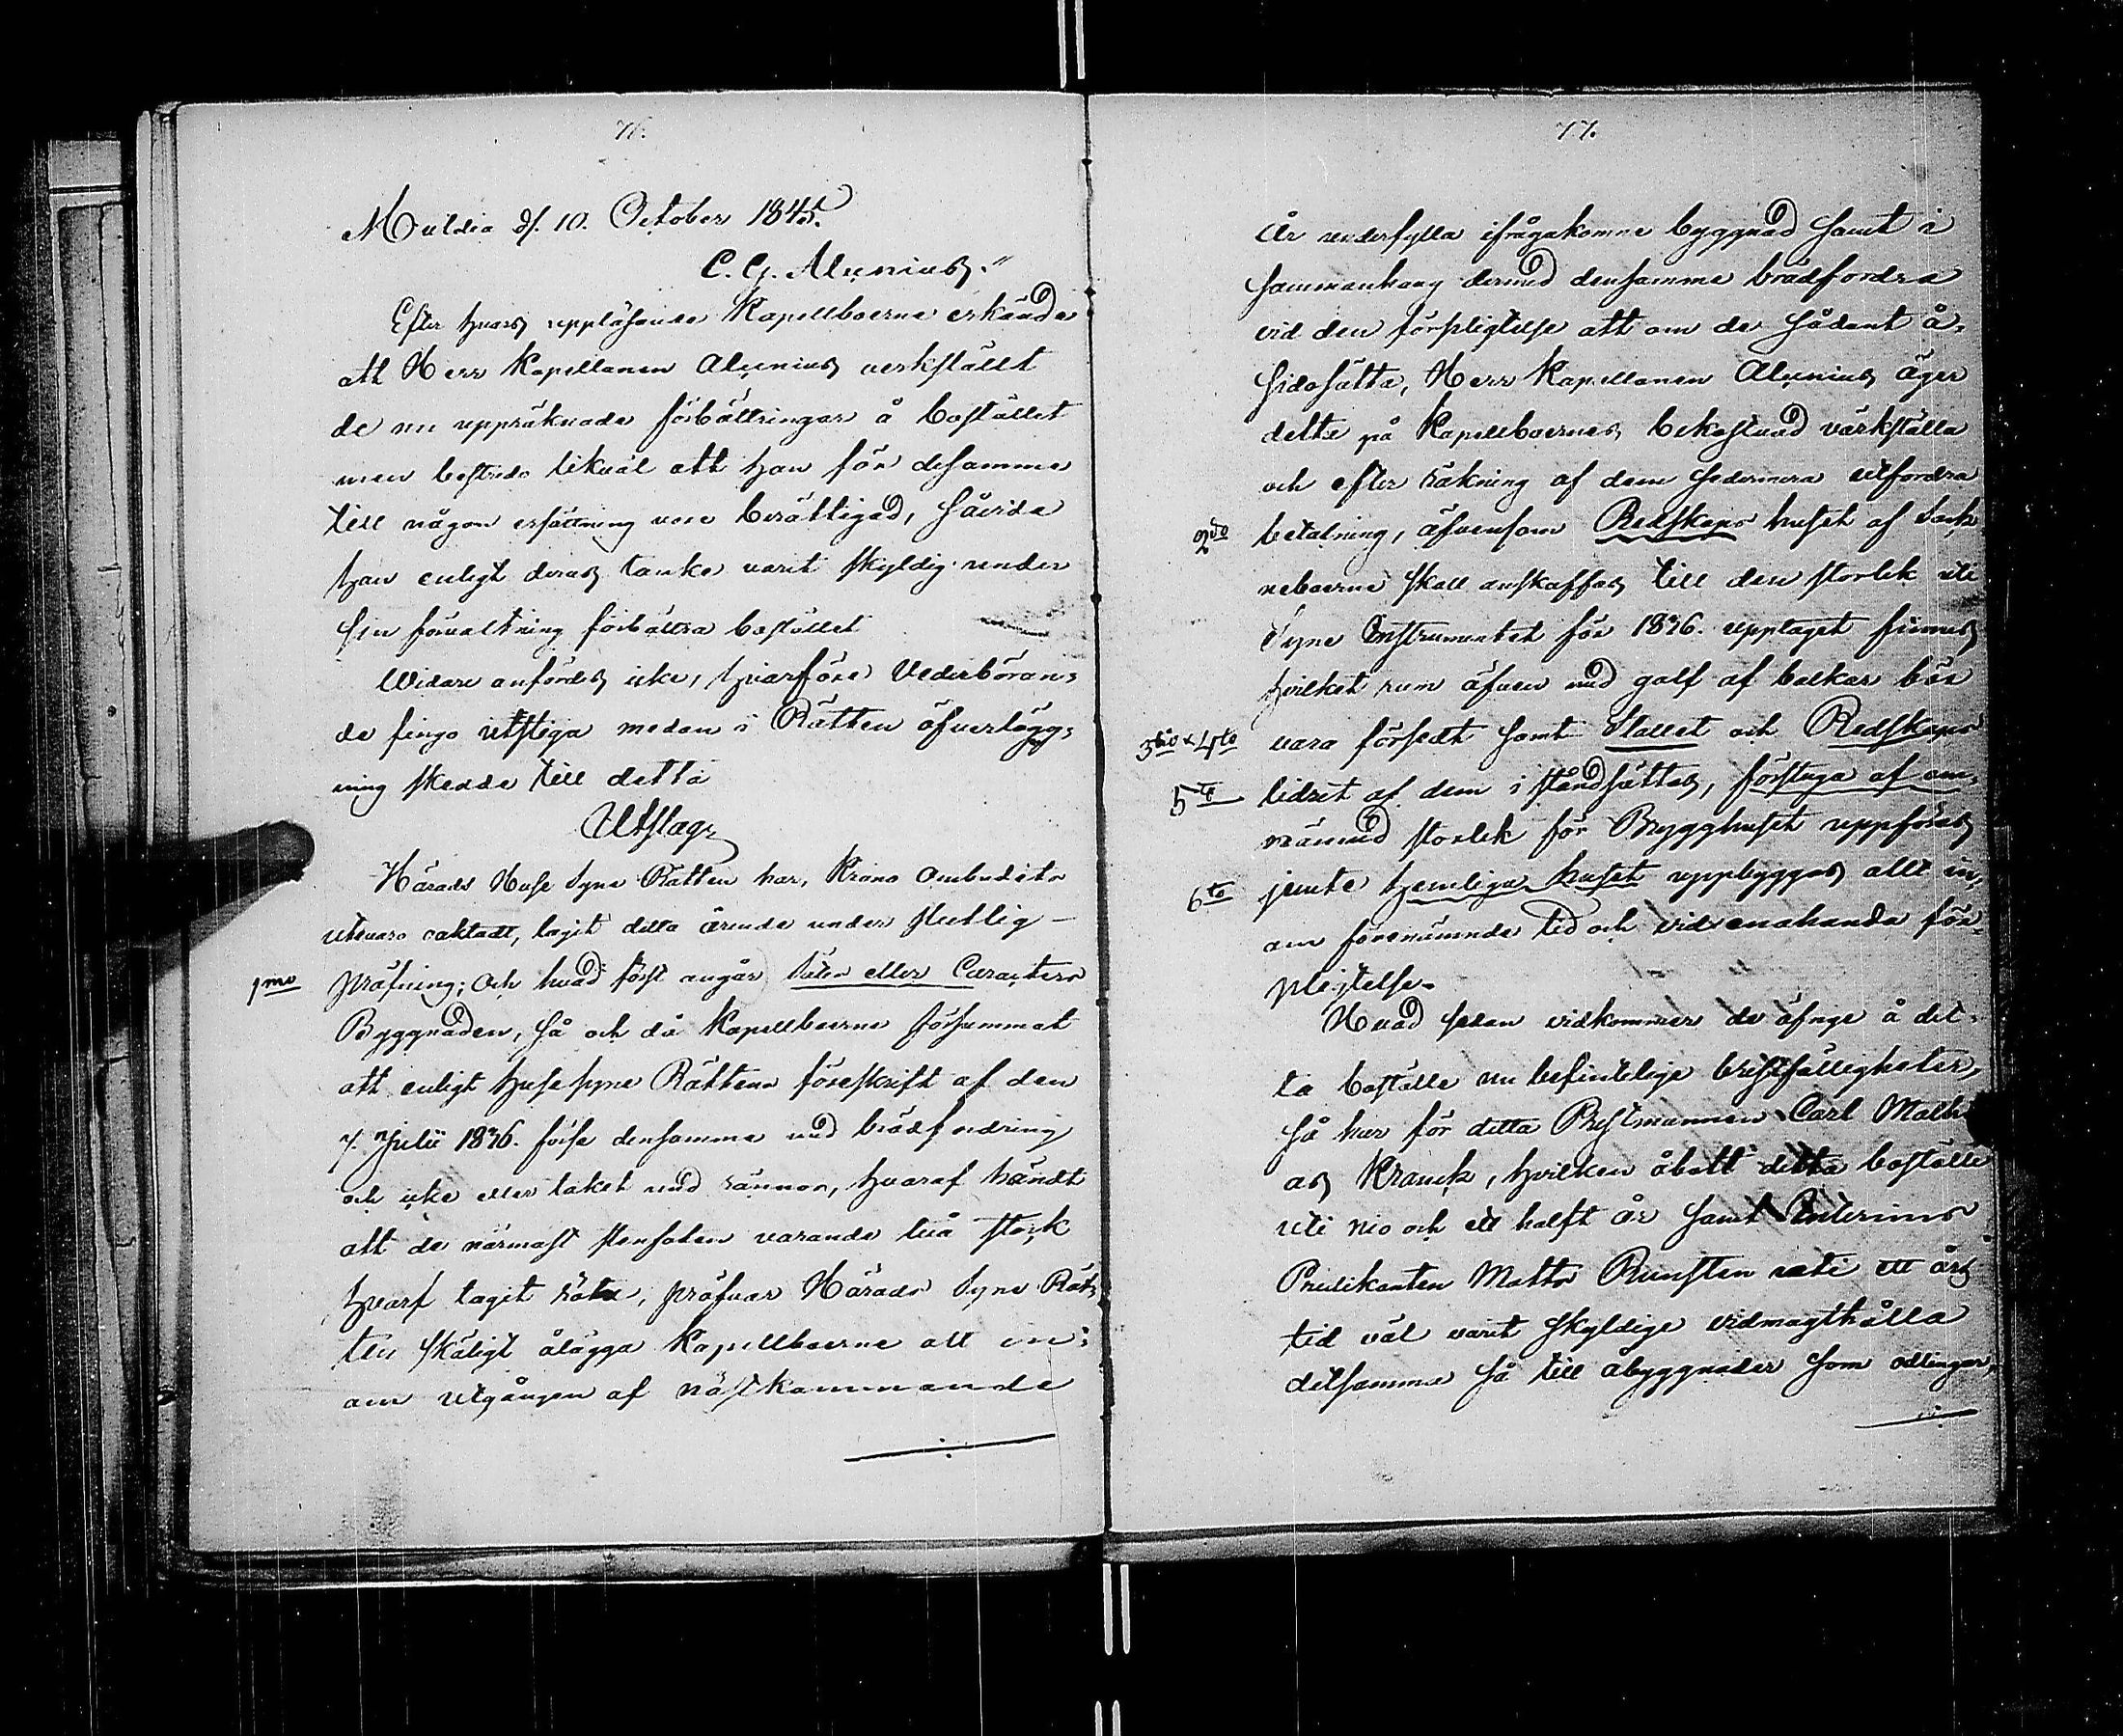 76.
Muldia d. 10. October 1845.
C. G. Alcenius."
Efter hvars uppläsande Kapellboerne erkände
att Herr Kapellanen Alcenius verkställt
de nu uppräknade förbättringar å bostället
men bestredo likväl att han för desamma
till någon ersättning vore berättigad, såvida
han enligt deras tanke varit skyldig under
sin förvaltning förbättra bostället
Widare anfördes icke, hvarföre Vederböran-
de fingo utstiga medan i Rätten öfverlägg-
ning skedde till detta
Utslag
Härads Huse Syne Rätten har, Krono Ombudets
utevaro oaktadt, tagit detta ärende under slutlig
1mo pröfning; och hvad först angår Säten eller Caracters
Byggnaden, så och då Kapellboerne försummat
att enligt Husesyne Rättens föreskrift af den
7. Julii 1836. förse densamma med brädfodring
och icke eller taket med rännor, hvaraf händt
att de närmast stenfoten varande två stock
hvarf tagit röta, pröfvar Härads Syne Rät-
ten skäligt ålägga Kapellboerne att in-
om utgången af nästkommande
77.
År underfylla ifrågakomne byggnad samt i
sammanhang dermed densamma brädfordra
vid den förpligtelse att om de sådant å-
sidosätta, Herr Kapellanen Alcenius äger
detta på Kapellboernes bekostnad värkställa
och efter räkning af dem sedermera utfordra
2do betalning, äfvensom Redskaps huset af Sock
neboerne skall anskaffas till den storlek uti
Syne Instrumentet för 1836. upptaget finnes
hvilket rum äfven med golf af balkar bör
3tio & 4to vara försedt samt Stallet och Redskaps
5te lidret af dem i ståndsättas, förstuga af om-
nämnd storlek för Brygghuset uppföres
6te jemte hemliga huset uppbyggas allt in-
om förenämnde tid och vid enahanda för-
plejtelse.
Hvad sedan vidkommer de öfrige å det-
ta boställe nu befintelige bristfälligheter,
så har för detta Prestmannen Carl Mathi
as Kranck, hvilken åbott detta boställe
uti nio och ett halft år samt Interims
Predikanten Matts Runsten uti ett års
tid väl varit skyldige vidmagthålla
detsamma så till åbyggnader som odlingar,